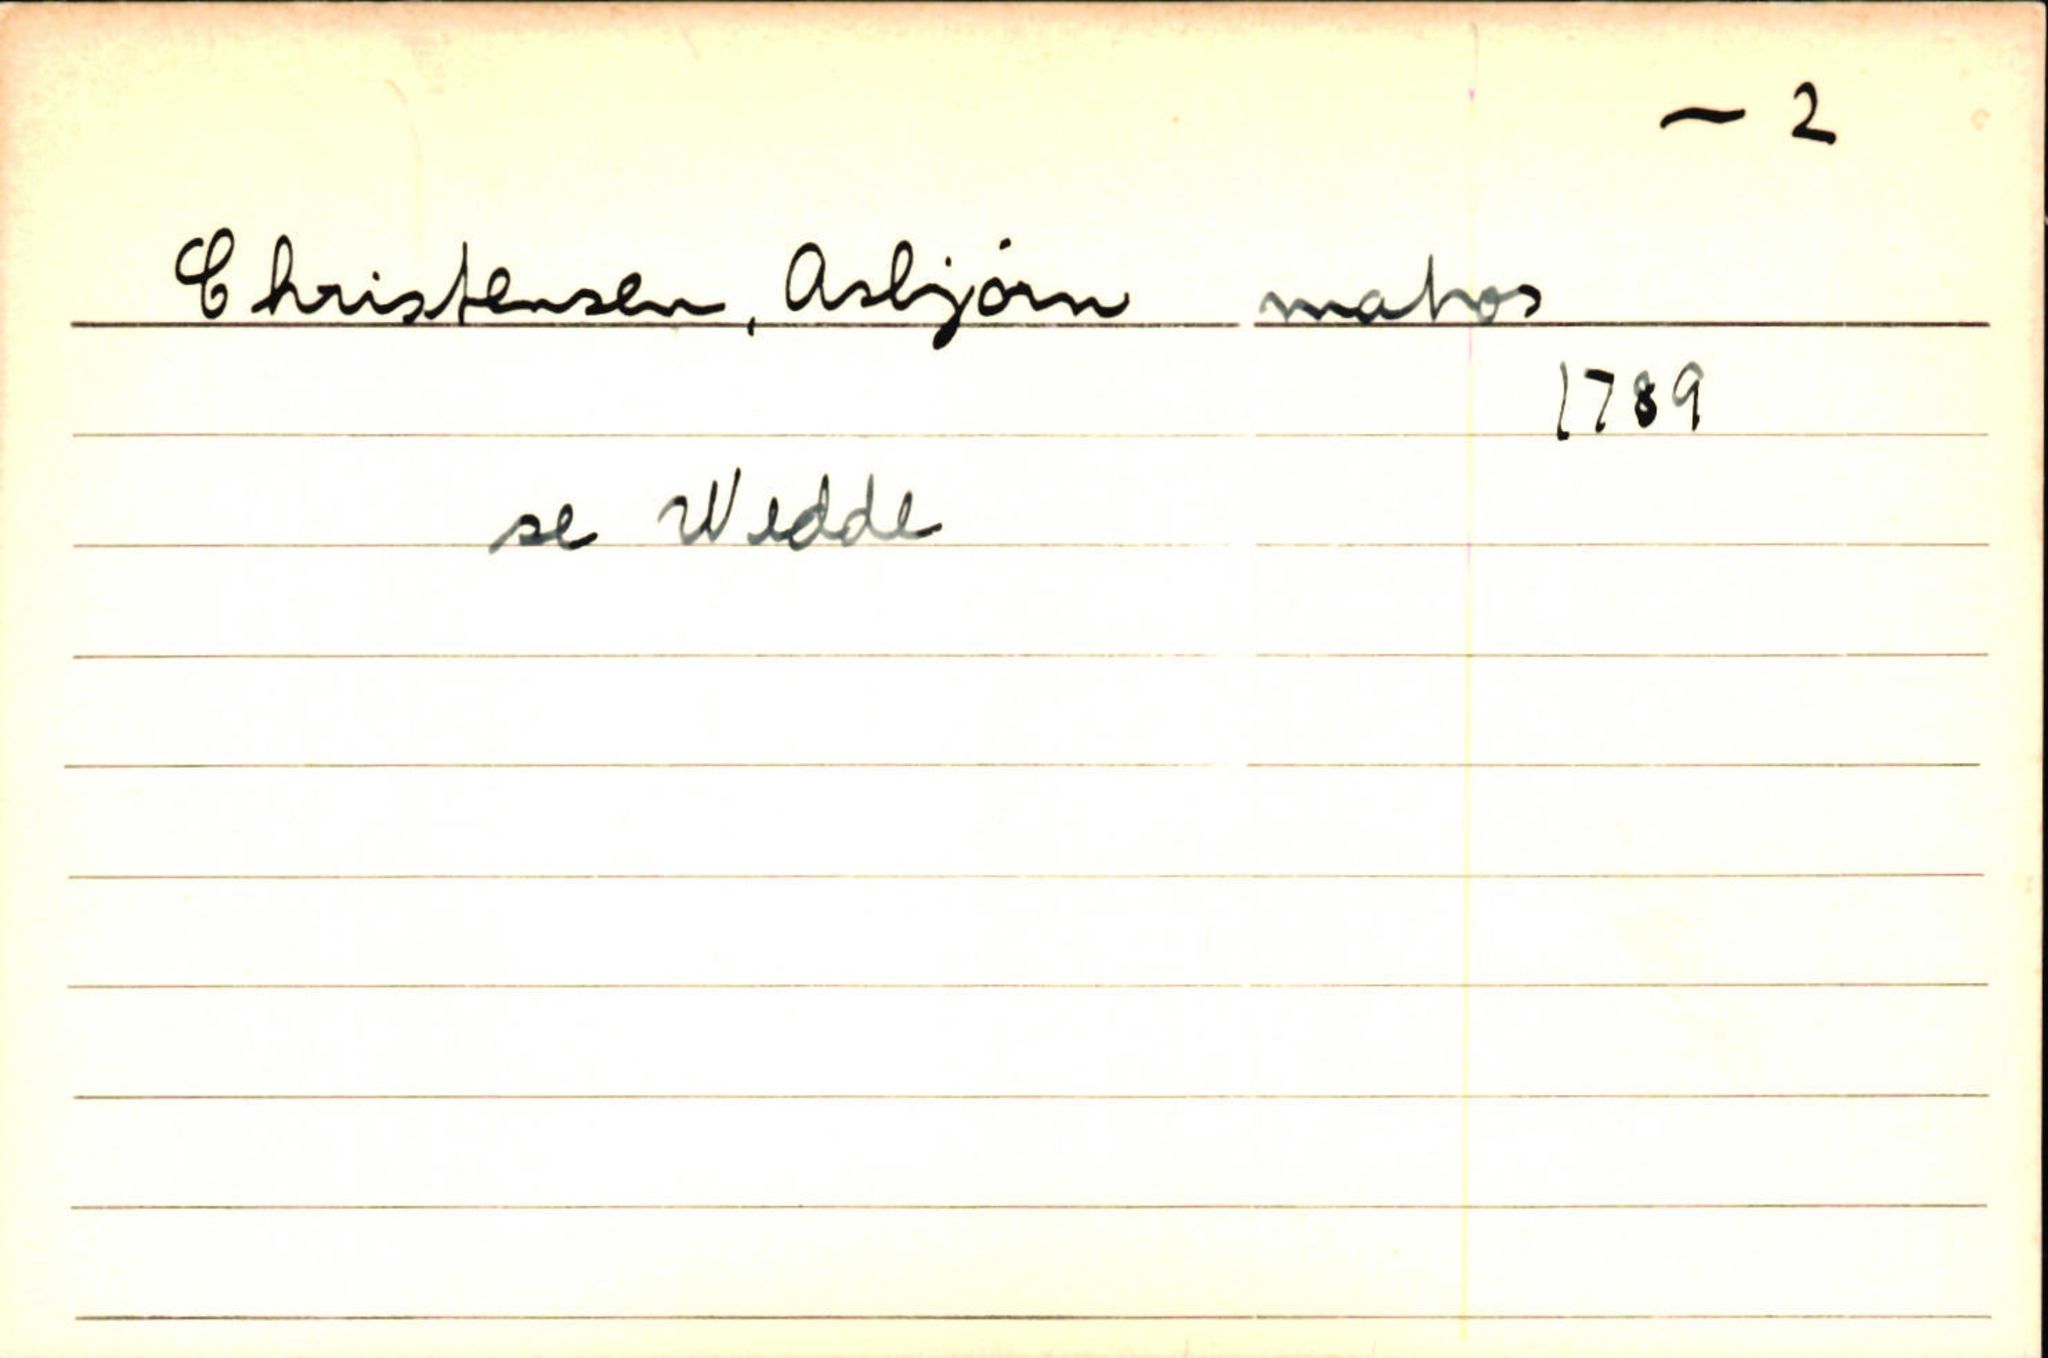 ~ 2
Christensen, Asbjørn matros
1789
se Wedde